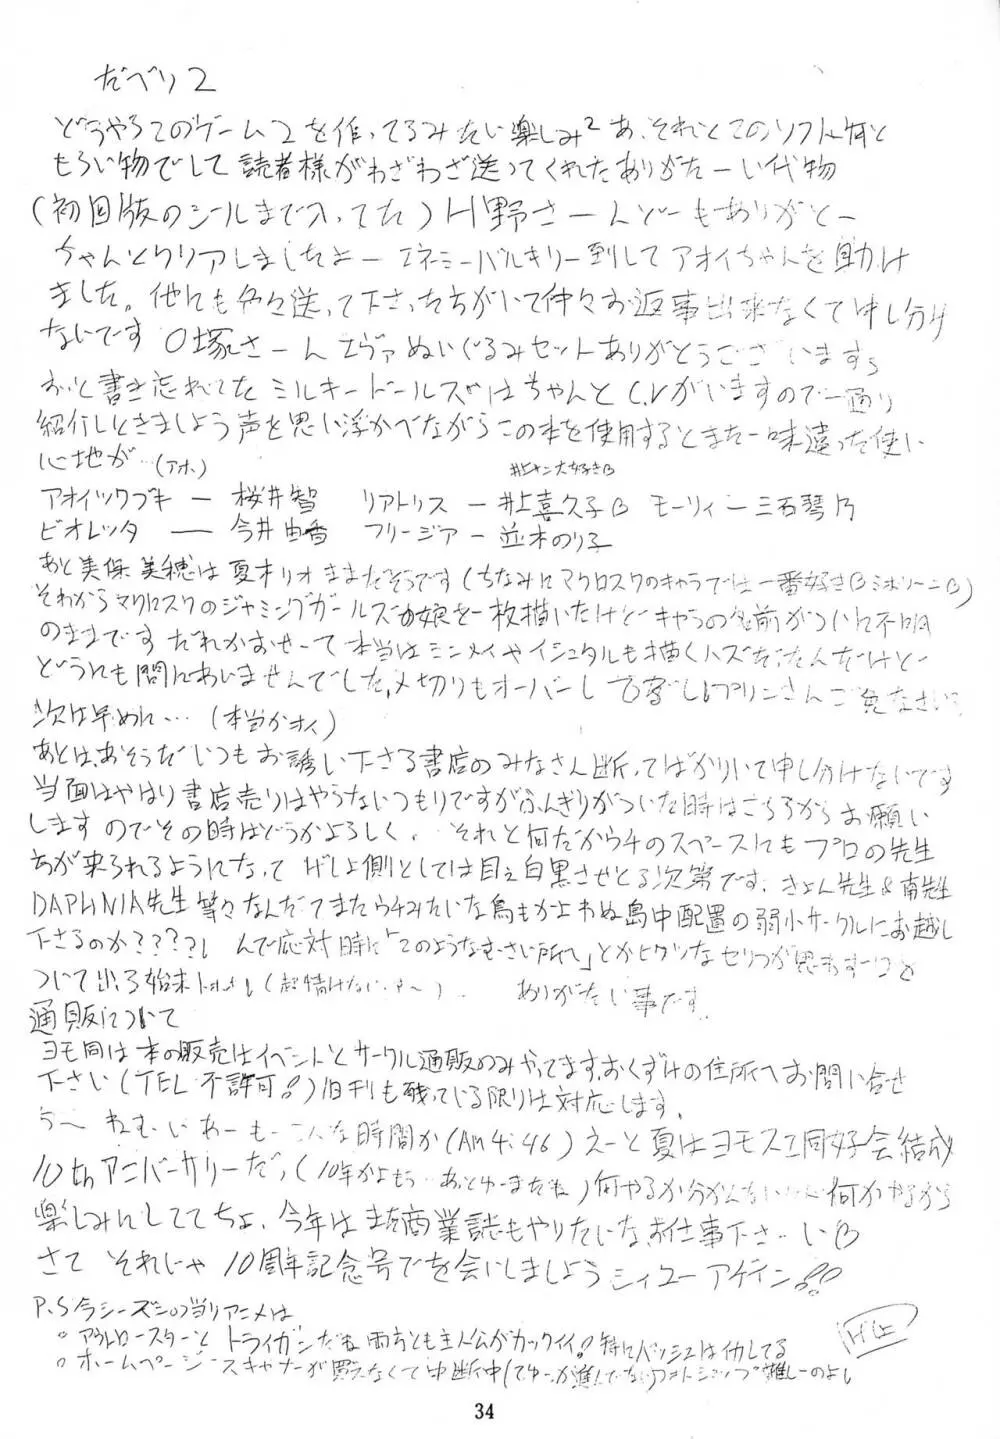 だべり2
どうやらこのゲーム2を作ってるみたい楽しみ2 あ、それとこのソフト何と
もらい物でして読者様がわざわざ送ってくれたありがたーい代物
(初回版のシールまで入ってた) H野さーんどーもありがとー
ちゃんとクリアしましたよー エネミーバルキリー倒してアオイちゃんを助け
ました。他にも色々送って下さった方がいて中々お返事出来なくて申し分け
ないです O塚さーんエヴァぬいぐるみセットありがとうございます
おっと書き忘れてた ミルキードールズはちゃんとC.Vがいますので一通り
紹介しときましよう声を思い浮かべながらこの本を使用するとまた一味違った使い
心地が…(アホ)
井上サン大好き
アオイツクブキ ー 桜井智 リアトリス ー 井上喜久子 モーリィ ー 三石琴乃
ビオレッタ ー 今井由香 フリージア ー 並木のり子
あと美保美穂は夏木リオ だそうです (ちなみにマクロス7のキャラでは一番好き ミホリーニ)
それからマクロス7のジャミングガールズの娘を一枚描いたけどキャラの名前がついに不明
のままです だれかおせーて本当はミンメイやイシュタルも描くハズだったんだけど
どうにも間にあいませんでした、〆切りもオーバーし プリンさんご免なさい
次は早めに…(本当かオイ)
あとは、あそうだいつもお誘い下さる書店のみなさん断ってばかりいて申し分けないです
当面はやはり書店売りはやらないつもりですがふんぎりがついた時はこちらからお願い
しますのでその時はどうかよろしく、それと何だかウチのスペースにもプロの先生
方が来られるようになって げしょ側としては目ぇ白黒させとる次第です、きよん先生&南先生
DAPHNIA先生等々なんだてまたウチみたいな鳥もかよわぬ島中配置の弱小サークルにお越し
下さるのか????! んで応対時に「このようなむさい所へ」とかヒクツなセリフが思わず口を
ついて出る始末 (超情けないっす〜) ありがたい事です
通販について
ヨモ同は本の販売はイベントとサークル通販のみやってます、おくずけの住所へお問い合せ
下さい(TEL 不許可!)旧刊も残っている限りは対応します、
う〜ねむいわーもーこんな時間か(Am4:46)えーと夏はヨモスエ同好会結成
10thアニバーサリーだっ(10年かよもう…あっとゆーまだね)何やるか分かんないけど何かやるから
楽しみにしててちょ、今年はまた商業誌もやりたいな、お仕事下さーい
さて それじゃ 10周年記念号でを会いしましよう シィユーアゲイン!!
P.S 今シーズンの当りアニメは
○アウトロースターとトライガンだね両方とも主人公がカックイイ!特にバッシュはイカしてる
○ホームページスキャナーが買えなくて中断中(てゆーか進んでない)フォトショップ難しーのよし
34